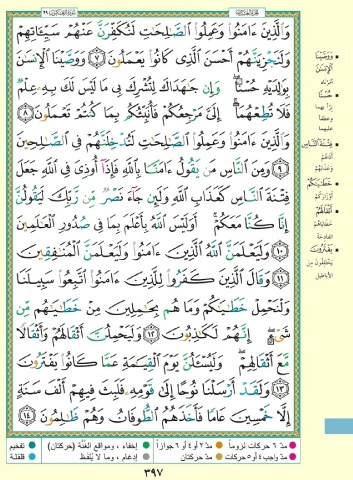 وَٱلَّذِينَ ءَامَنُوا۟ وَعَمِلُوا۟ ٱلصَّـٰلِحَـٰتِ لَنُكَفِّرَنَّ عَنْهُمْ سَيِّـَٔاتِهِمْ
وَلَنَجْزِيَنَّهُمْ أَحْسَنَ ٱلَّذِى كَانُوا۟ يَعْمَلُونَ ٧ وَوَصَّيْنَا ٱلْإِنسَـٰنَ
بِوَٰلِدَيْهِ حُسْنًا ۖ وَإِن جَـٰهَدَاكَ لِتُشْرِكَ بِى مَا لَيْسَ لَكَ بِهِۦ عِلْمٌ
فَلَا تُطِعْهُمَآ ۚ إِلَىَّ مَرْجِعُكُمْ فَأُنَبِّئُكُم بِمَا كُنتُمْ تَعْمَلُونَ ٨
وَٱلَّذِينَ ءَامَنُوا۟ وَعَمِلُوا۟ ٱلصَّـٰلِحَـٰتِ لَنُدْخِلَنَّهُمْ فِى ٱلصَّـٰلِحِينَ
٩ وَمِنَ ٱلنَّاسِ مَن يَقُولُ ءَامَنَّا بِٱللَّهِ فَإِذَآ أُوذِىَ فِى ٱللَّهِ جَعَلَ
فِتْنَةَ ٱلنَّاسِ كَعَذَابِ ٱللَّهِ وَلَئِن جَآءَ نَصْرٌ مِّن رَّبِّكَ لَيَقُولُنَّ
إِنَّا كُنَّا مَعَكُمْ ۚ أَوَلَيْسَ ٱللَّهُ بِأَعْلَمَ بِمَا فِى صُدُورِ ٱلْعَـٰلَمِينَ
١٠ وَلَيَعْلَمَنَّ ٱللَّهُ ٱلَّذِينَ ءَامَنُوا۟ وَلَيَعْلَمَنَّ ٱلْمُنَـٰفِقِينَ
١١ وَقَالَ ٱلَّذِينَ كَفَرُوا۟ لِلَّذِينَ ءَامَنُوا۟ ٱتَّبِعُوا۟ سَبِيلَنَا
وَلْنَحْمِلْ خَطَـٰيَـٰكُمْ وَمَا هُم بِحَـٰمِلِينَ مِنْ خَطَـٰيَـٰهُم مِّن
شَىْءٍ ۖ إِنَّهُمْ لَكَـٰذِبُونَ ١٢ وَلَيَحْمِلُنَّ أَثْقَالَهُمْ وَأَثْقَالًا
مَّعَ أَثْقَالِهِمْ ۖ وَلَيُسْـَٔلُنَّ يَوْمَ ٱلْقِيَـٰمَةِ عَمَّا كَانُوا۟ يَفْتَرُونَ
١٣ وَلَقَدْ أَرْسَلْنَا نُوحًا إِلَىٰ قَوْمِهِۦ فَلَبِثَ فِيهِمْ أَلْفَ سَنَةٍ
إِلَّا خَمْسِينَ عَامًا فَأَخَذَهُمُ ٱلطُّوفَانُ وَهُمْ ظَـٰلِمُونَ ١٤
وَوَصَّيْنَا
ٱلْإِنسَـٰنَ
أمرناه
حُسْنًا
فِتْنَةَ ٱلنَّاسِ
خَطَـٰيَـٰكُمْ
أوزاركم
أَثْقَالَهُمْ
يَفْتَرُونَ
يختلقون من
الأباطيل
مدّ ٦ حركات لزوماً
مدّ ٢ أو ٤ أو ٦ جوازاً
مدّ واجب ٤ أو ٥ حركات
مدّ حركتان
إخفاء، ومواقع الغُنَّة (حركتان)
إدغام، وما لا يُلفَظ
تفخيم
قلقلة
٣٩٧